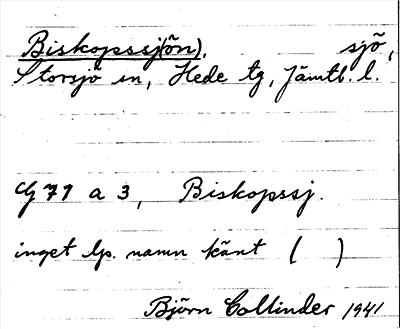 Biskopssj(ön), sjö,
Storsjö sn, Hede tg, Jämtl. l.
G 71 a 3, Biskopssj.
inget lp. namn känt ( )
Björn Collinder 1941